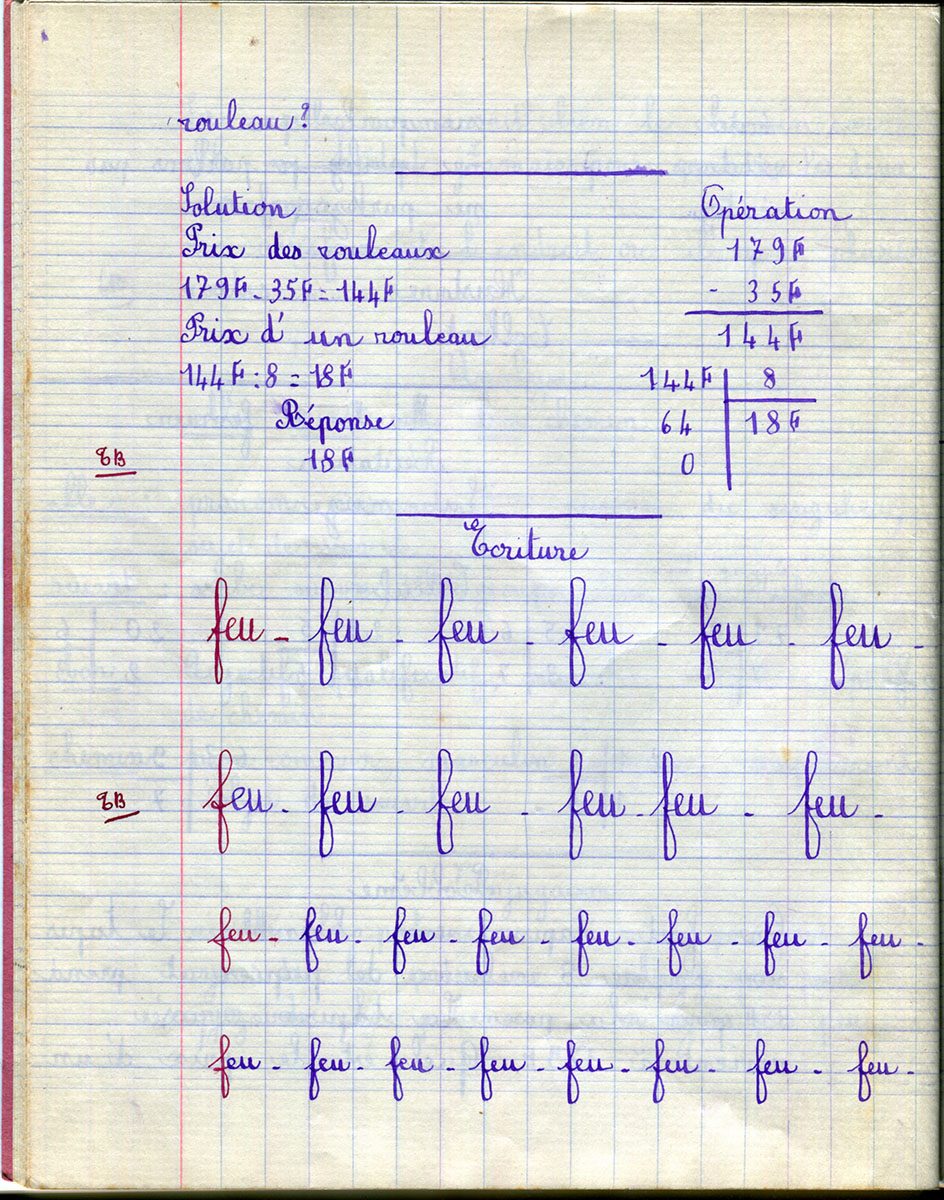 rouleau?
Solution
Prix des rouleaux
179F - 35F = 144F
Prix d'un rouleau
144F : 8 = 18F
Réponse
TB 18F
Opération
179F
- 35F
144F
144F 8
64 18F
0
Ecriture
feu - feu - feu - feu - feu - feu -
TB feu - feu - feu - feu - feu - feu -
feu - feu - feu - feu - feu - feu - feu - feu -
feu - feu - feu - feu - feu - feu - feu - feu -